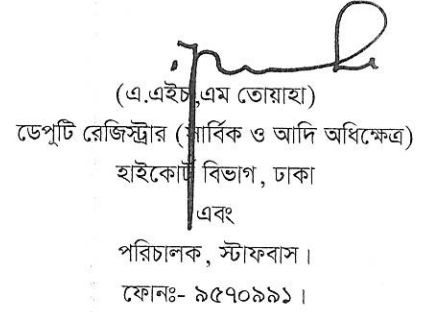 (এ.এইচ.এম তোয়াহা)
ডেপুটি রেজিস্ট্রার (সার্বিক ও আদি অধিক্ষেত্র)
হাইকোর্ট বিভাগ, ঢাকা
এবং
পরিচালক, স্টাফবাস।
ফোনঃ- ৯৫৭০৯৯১।